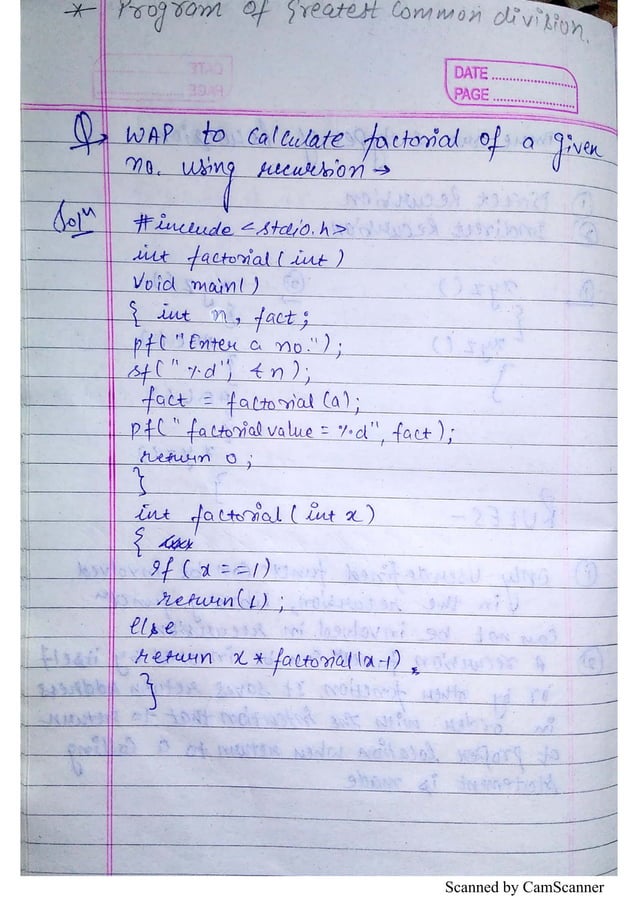 * Program of Greatest Common division.
DATE
PAGE
Q→ WAP to calculate factorial of a given
no. using recursion →
Solⁿ #include <stdio.h>
int factorial (int)
void main()
{ int n, fact;
pf("Enter a no.");
sf("%d", &n);
fact = factorial (a);
pf("factorial value = %d", fact);
return 0;
}
int factorial (int x)
{
if (x==1)
return(1);
else
return x * factorial(x-1).
}
Scanned by CamScanner